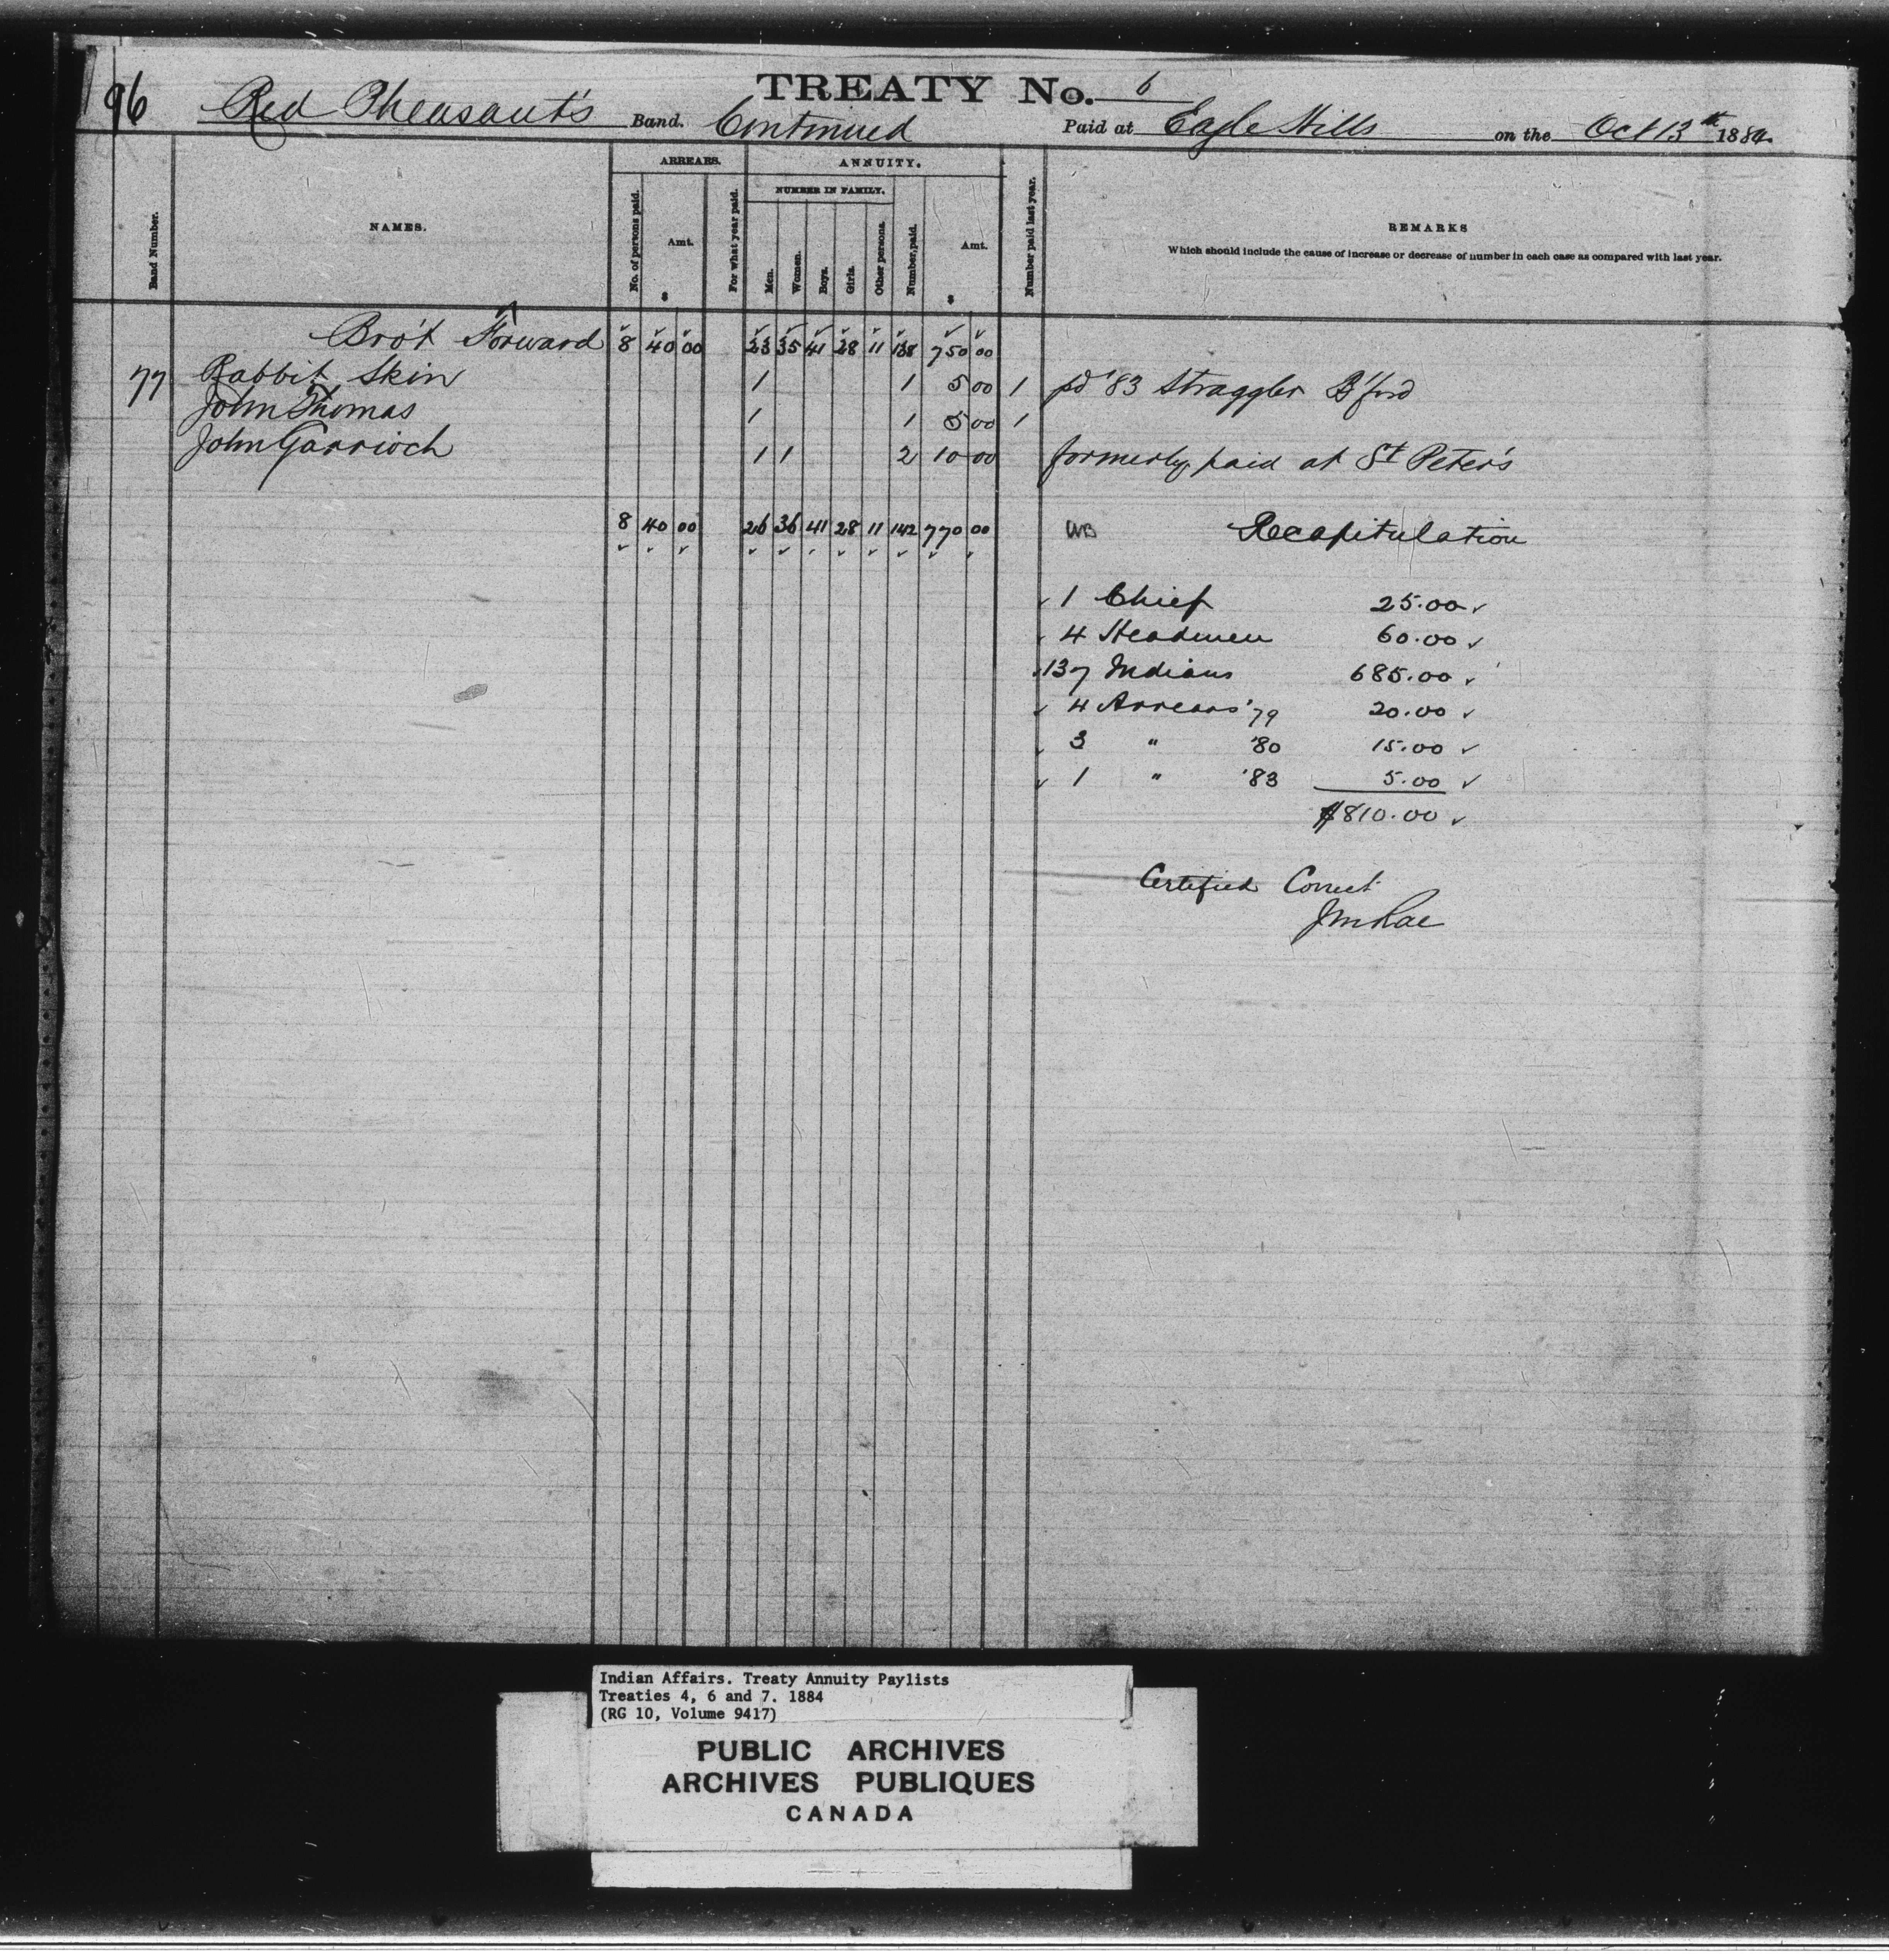 96
TREATY No. 6
Red Pheasant's Band. Continued Paid at Eagle Hills on the Oct 13th 1884.
ARREARS. ANNUITY.
NUMBER IN FAMILY.
Band Number. NAMES. No. of persons paid. Amt. $ For what year paid. Men. Women. Boys. Girls. Other persons. Number paid. Amt. $ Number paid last year. REMARKS
Which should include the cause of increase or decrease of number in each case as compared with last year.
Bro't Forward 8 40 00 23 35 41 28 11 138 750 00
77 Rabbit Skin 1 1 5 00 1 pd '83 Straggler B'ford
John Thomas 1 1 5 00 1
John Garrioch 1 1 2 10 00 formerly paid at St Peter's
8 40 00 26 36 41 28 11 142 770 00 Recapitulation
1 Chief 25.00
4 Headmen 60.00
137 Indians 685.00
4 Arrears '79 20.00
3 " '80 15.00
1 " '83 5.00
$810.00
Certified Correct
JMRae
Indian Affairs. Treaty Annuity Paylists
Treaties 4, 6 and 7. 1884
(RG 10, Volume 9417)
PUBLIC ARCHIVES
ARCHIVES PUBLIQUES
CANADA